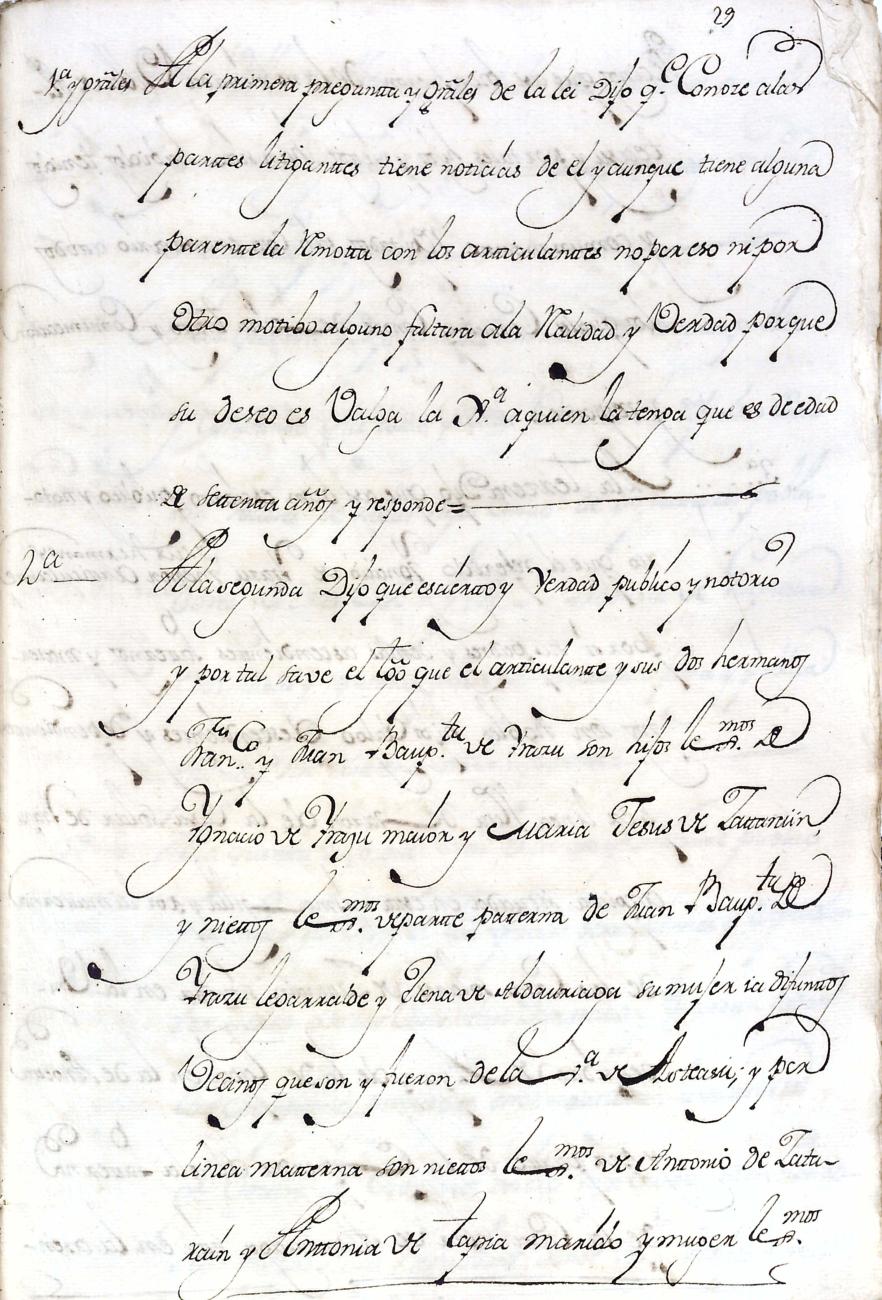 29
1.ª y grãles A la primera preguntta y grãles de la lei Dijo q.e Conoze a las
parttes litiganttes tiene noticias de el y aunque tiene alguna
parenttela Rmotta con los articulanttes no por eso ni por
Otro motibo alguno faltara ala Ralidad y Verdad porque
su deseo es Valga la A quien la tenga que es de edad
de settentta años y responde =
2.ª A la segunda Dijo que es ciertto y Verdad publico y notorio
y por tal save el tgõ que el articulante y sus dos hermanos
Fran.co y Juan Baup.ta de Yrazu son hijos lex.mos de
Ygnacio de Yrazu maior y Maria Jesus de Zattarain,
y niettos lex.mos de partte patterna de Juan Baup.ta de
Yrazu legarralde y Elena de Aldauriaga su mujer ia difunttos
Vecinos que son y fueron de la v.ª de Asteasu; y por
linea matterna son niettos lex.mos de Anttonio de Zata-
rain y Anttonia de tapia marido y muger lex.mos